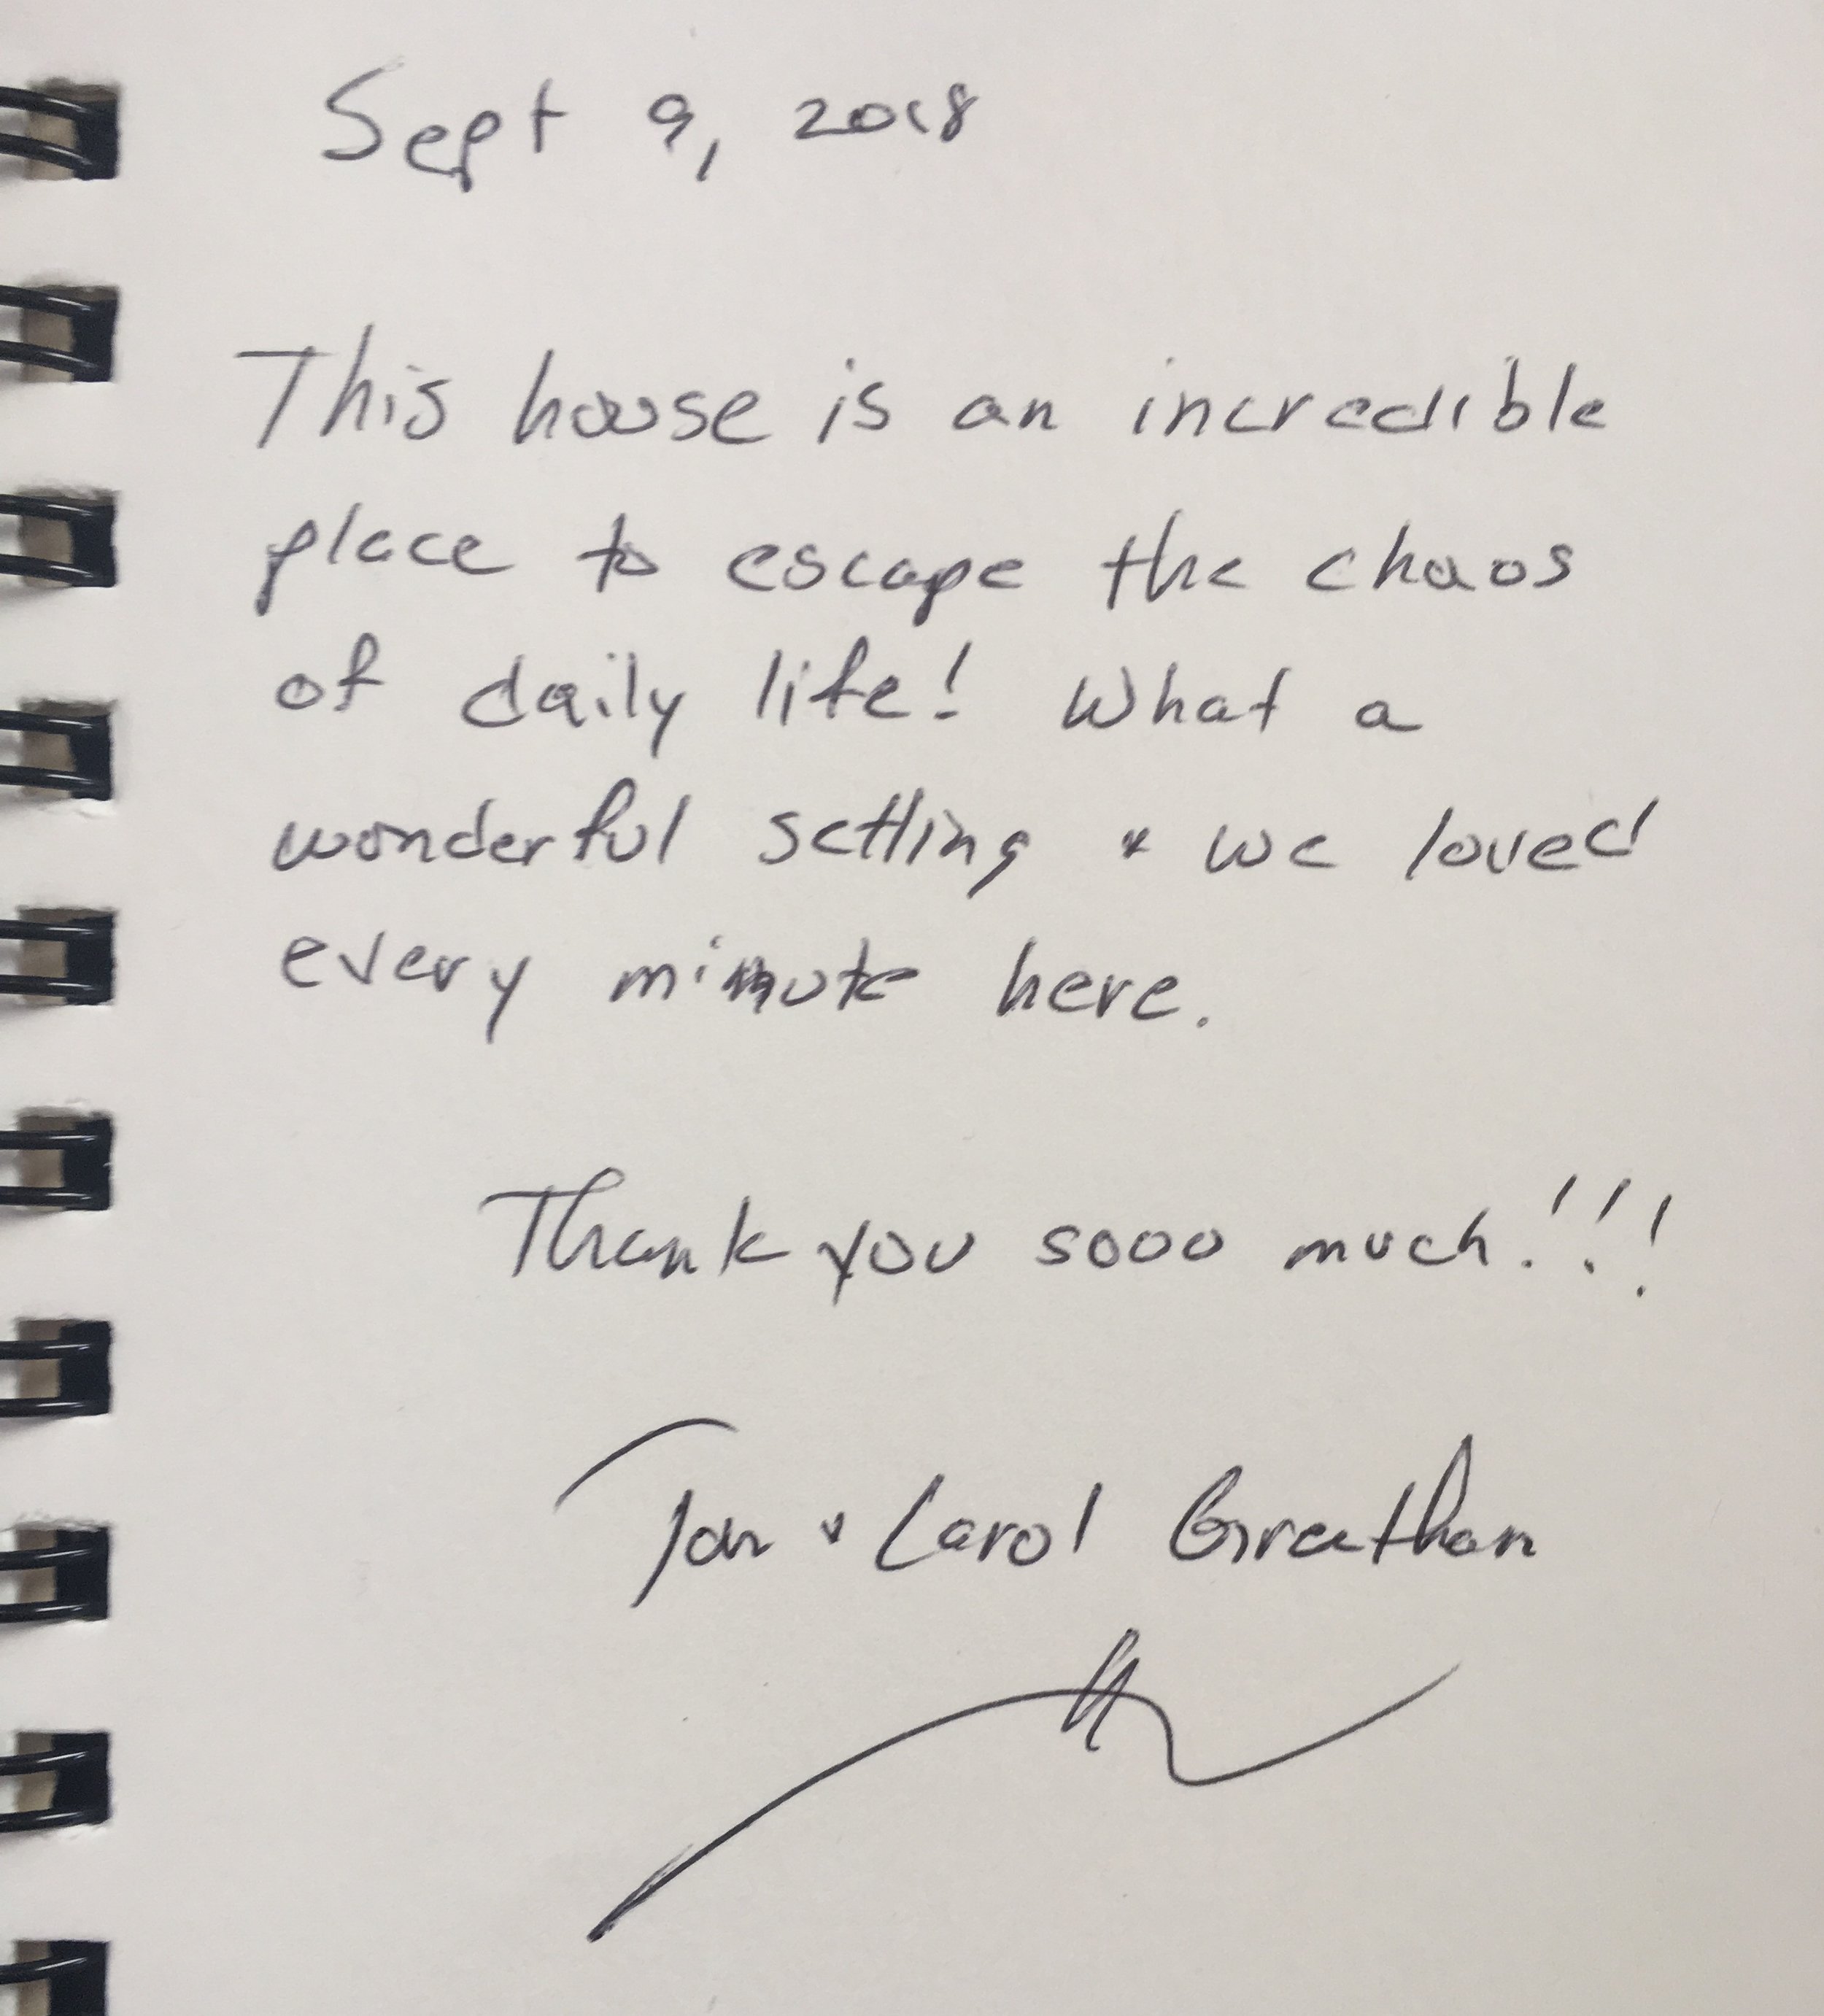 Sept 9, 2018
This house is an incredible
place to escape the chaos
of daily life! What a
wonderful setting & we loved
every minute here.
Thank you sooo much!!!
& Carol Greathan